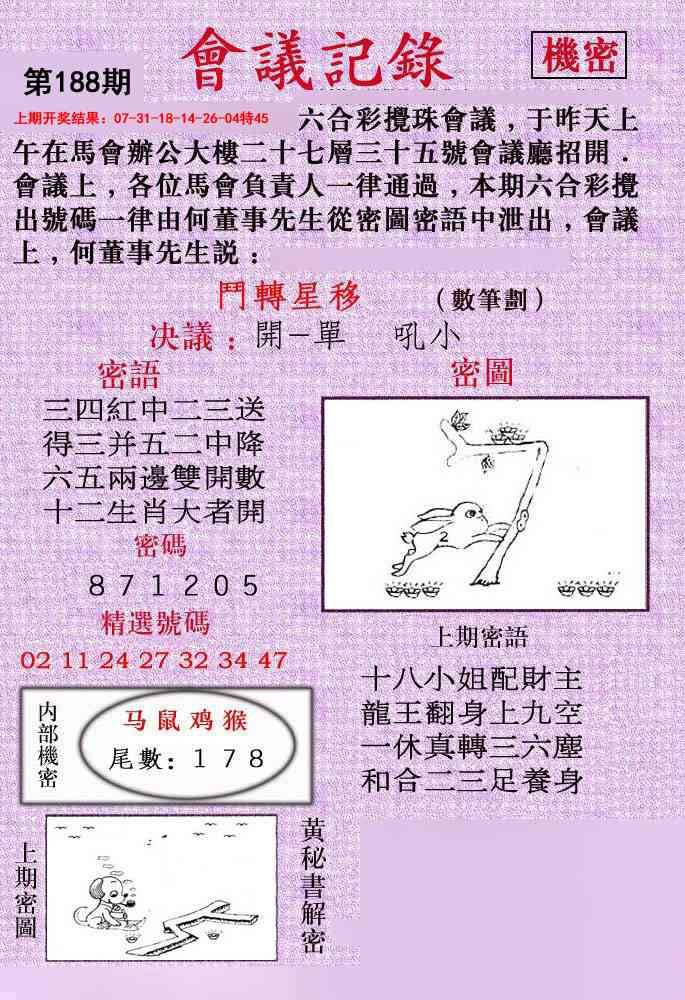 會議記錄
機密
第188期
上期开奖结果：07-31-18-14-26-04特45
六合彩攪珠會議，于昨天上
午在馬會辦公大樓二十七層三十五號會議廳招開．
會議上，各位馬會負責人一律通過，本期六合彩攪
出號碼一律由何董事先生從密圖密語中泄出，會議
上，何董事先生説：
鬥轉星移 （數筆劃）
决議：開－單 吼小
密語
三四紅中二三送
得三并五二中降
六五兩邊雙開數
十二生肖大者開
密碼
871205
精選號碼
02 11 24 27 32 34 47
内部機密
马鼠鸡猴
尾數：178
上期密圖
密圖
2
7
上期密語
十八小姐配財主
龍王翻身上九空
一休真轉三六塵
和合二三足養身
黄秘書解密